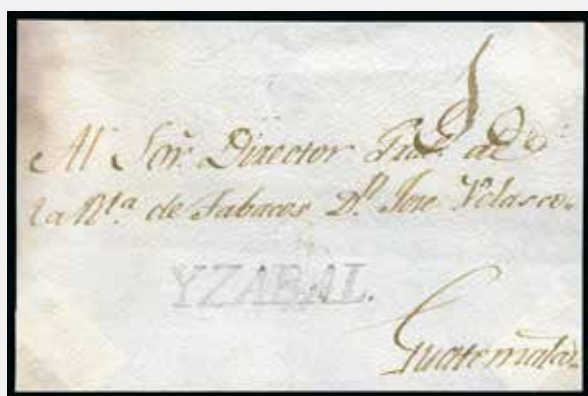 Al Sor. Director Gral. de
la Rta. de Tabacos Dn. Jose Velasco.
YZABAL.
Guatemala